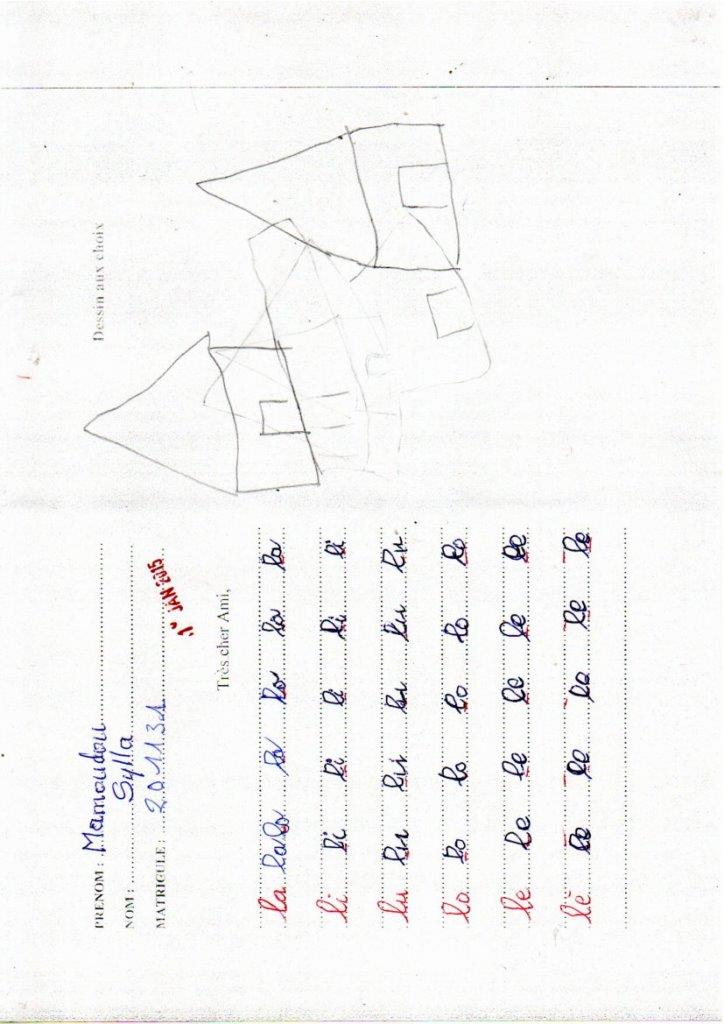 PRENOM : Mamoudou
NOM : Sylla
MATRICULE : 201131
1er JAN 2015
Dessin aux choix
Très cher Ami,
la la la la la la la
li li li li li li
lu lu lu lu lu lu
lo lo lo lo lo lo
le le le le le le
lè le le le le le